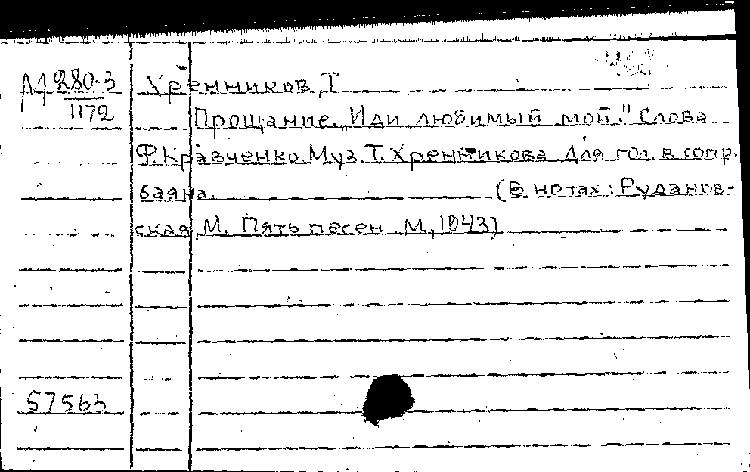 М 280-3
1172
Хренников, Т
Прощание. „Иди любимый мой." Слова
Ф. Кравченко Муз. Т. Хренникова Для гол. в сопр.
баяна. (В нотах: Руданов-
ская, М. Пять песен М, 1943)
57563